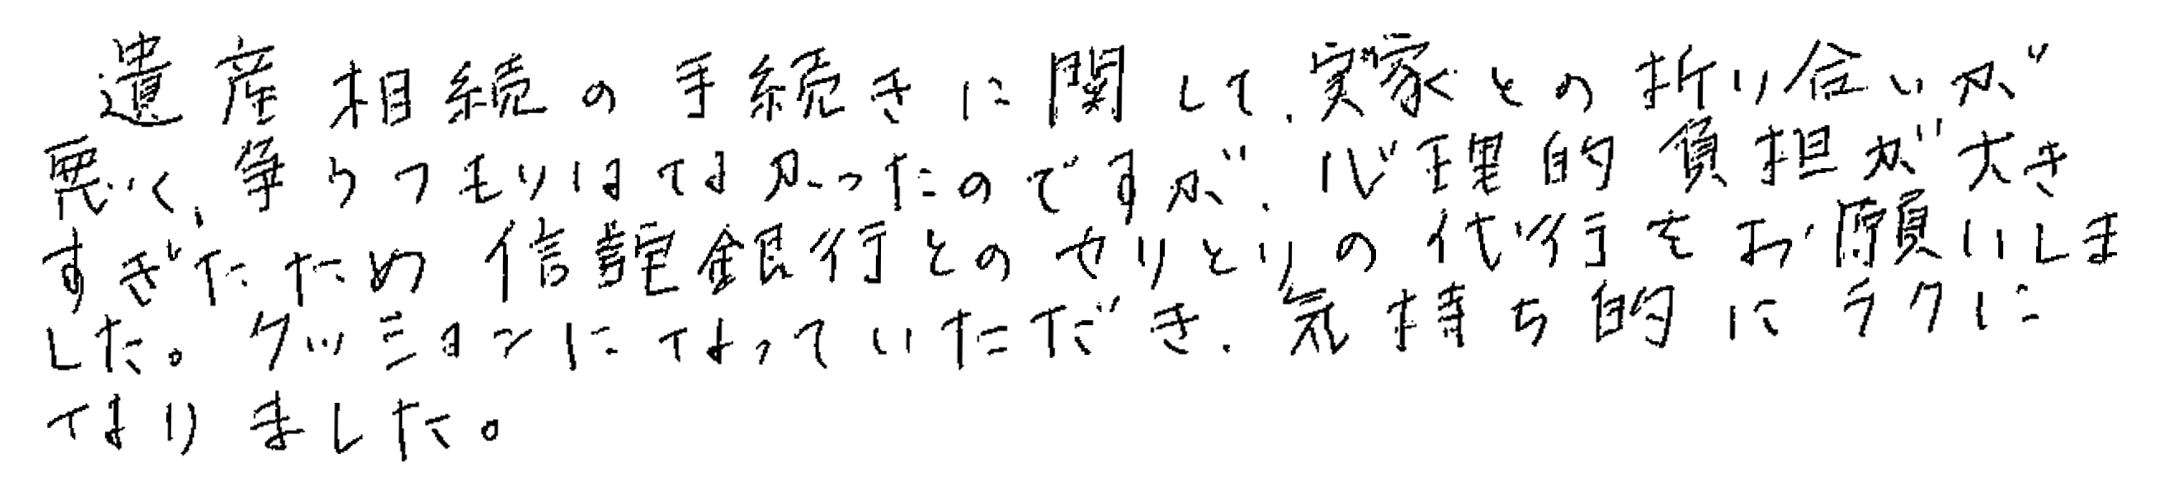 遺産相続の手続きに関して、実家との折り合いが
悪く、争うつもりはなかったのですが、心理的負担が大き
すぎたため信託銀行とのやりとりの代行をお願いしま
した。クッションになっていただき、気持ち的にラクに
なりました。